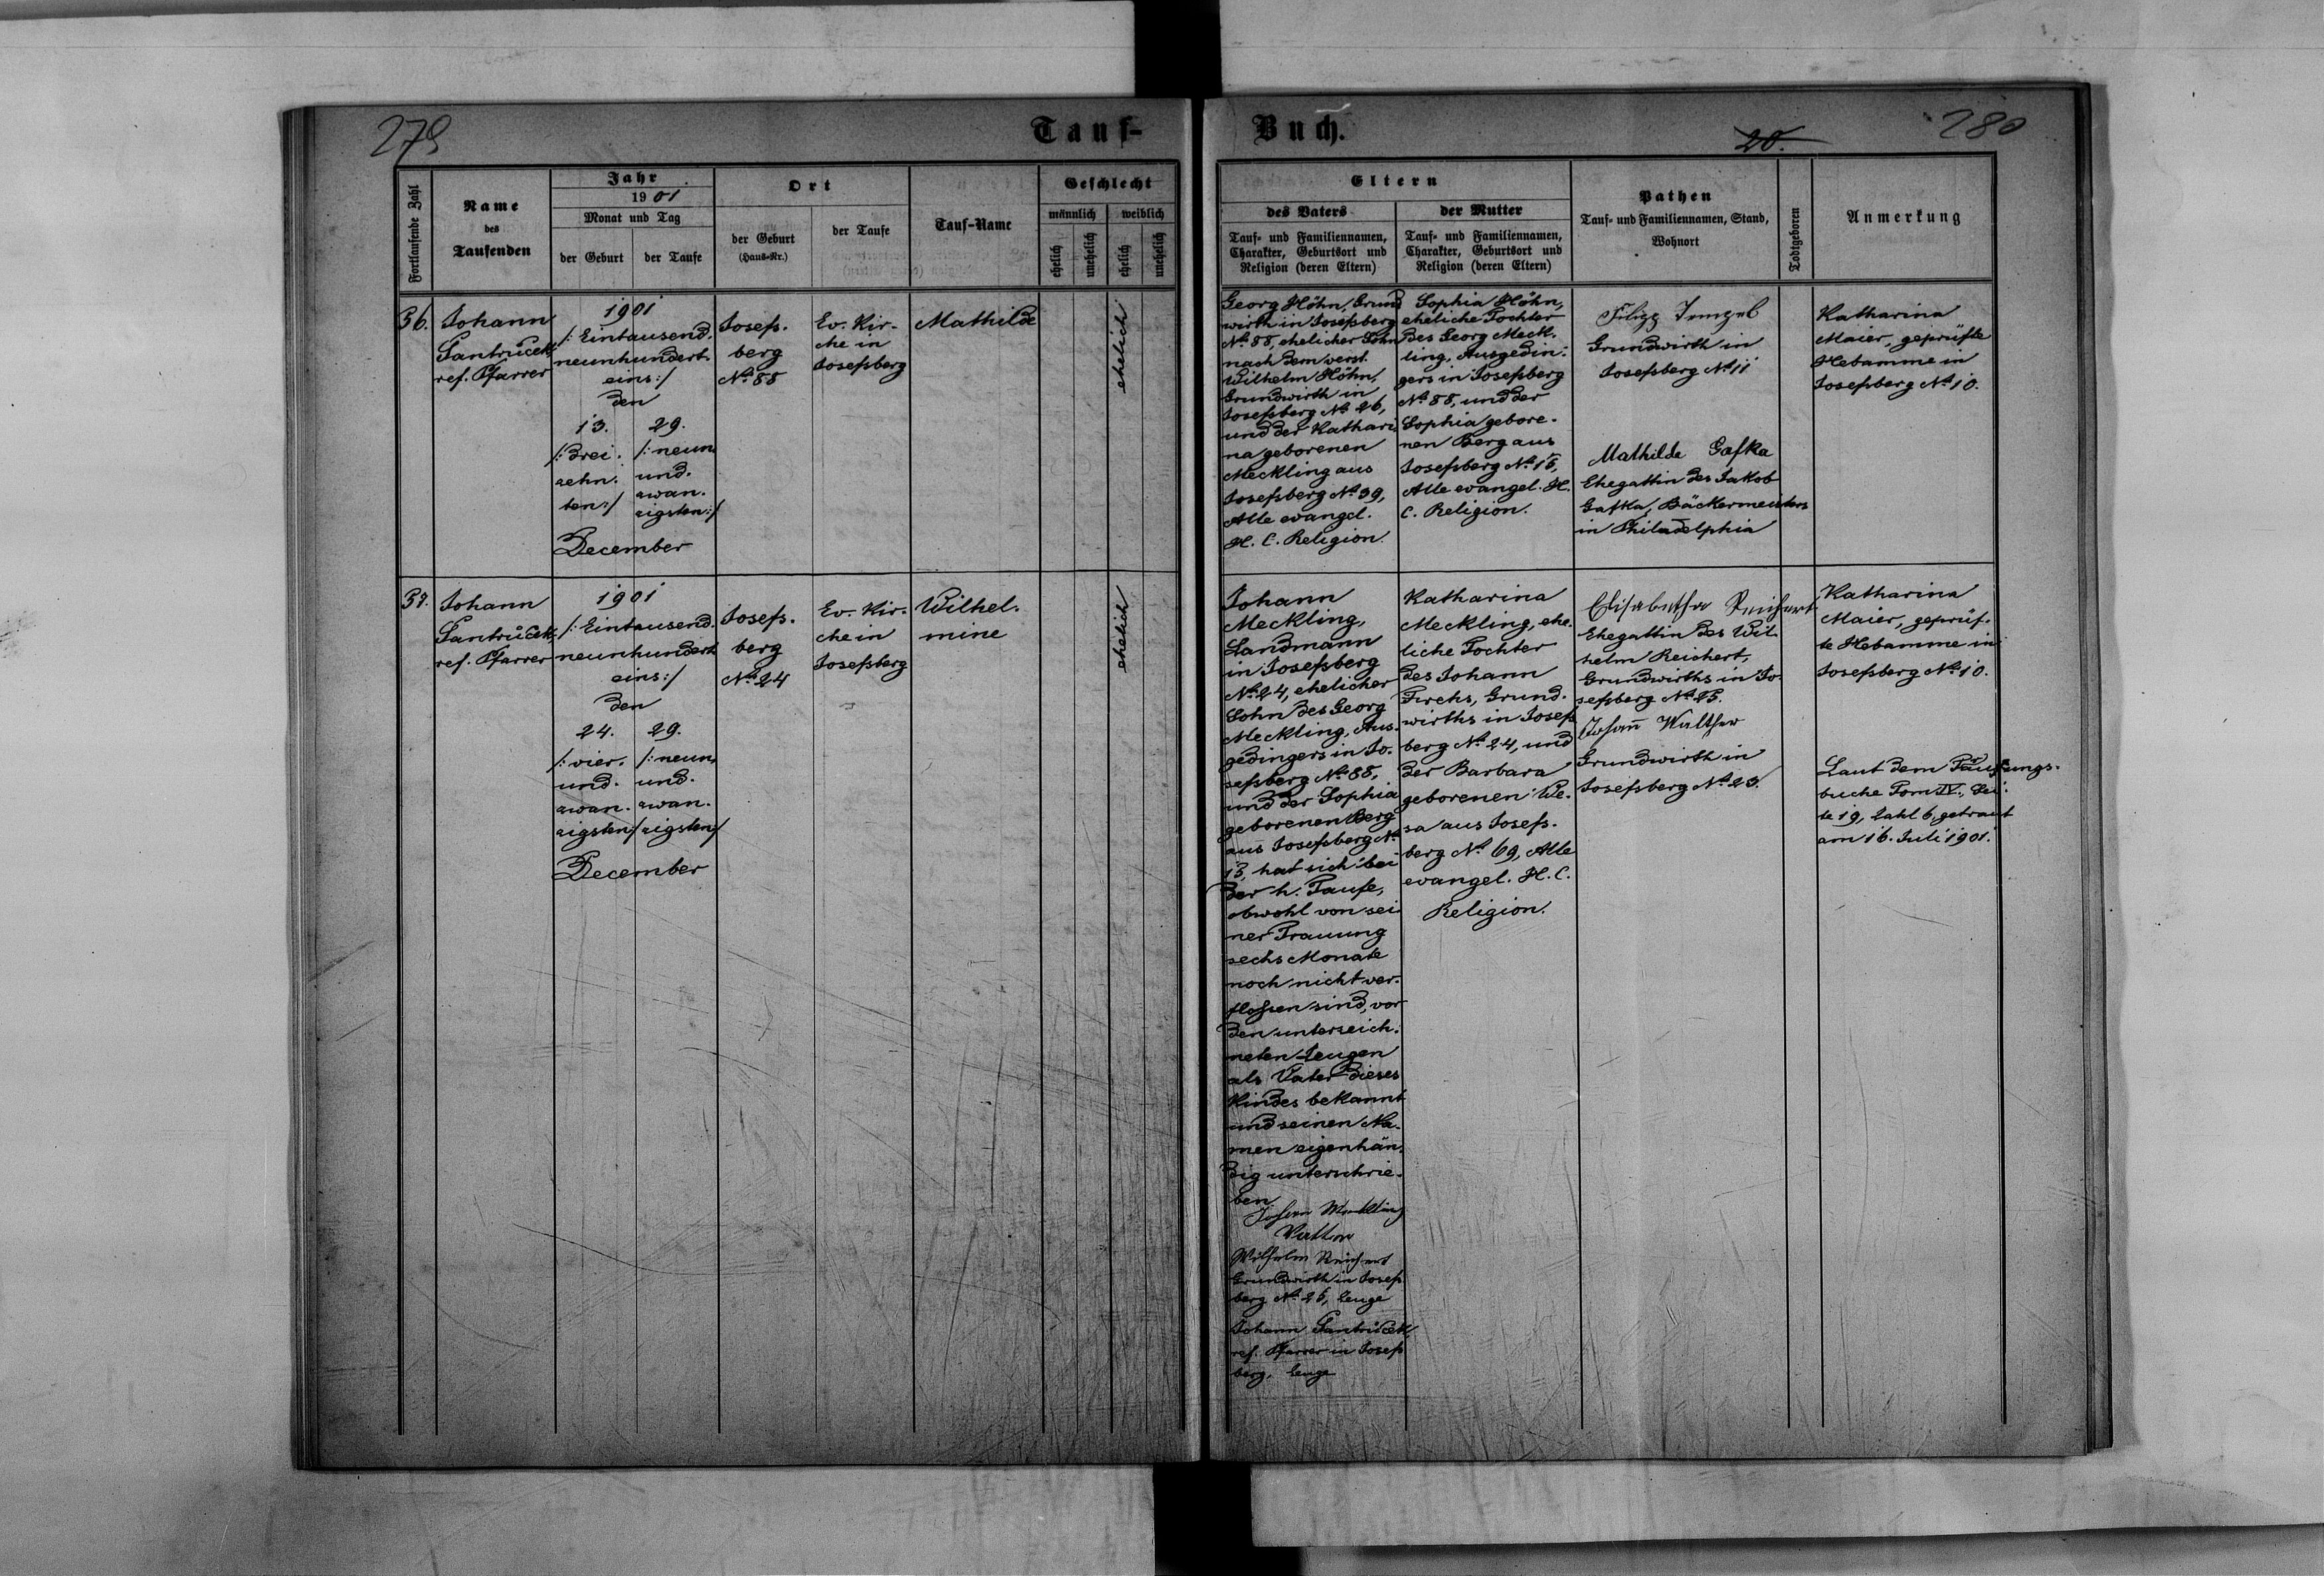 279
Tauf-
Buch.
20.
280
Fortlaufende Zahl
Name
des
Taufenden
Jahr
1901
Monat und Tag
der Geburt
der Taufe
Ort
der Geburt
(Haus-Nr.)
der Taufe
Tauf-Name
Geschlecht
männlich
weiblich
ehelich
unehelich
ehelich
unehelich
Eltern
des Vaters
Tauf- und Familiennamen,
Charakter, Geburtsort und
Religion (deren Eltern)
der Mutter
Tauf- und Familiennamen,
Charakter, Geburtsort und
Religion (deren Eltern)
Pathen
Tauf- und Familiennamen, Stand,
Wohnort
Todtgeboren
Anmerkung
36.
Johann
Santrůček,
ref. Pfarrer
1901
/: Eintausend.
neunhundert.
eins :/
den
13.
/: drei.
zehn.
ten :/
29.
/: neun
und.
zwan.
zigsten :/
December
Josefs.
berg
No 88
Ev. Kir-
che in
Josefsberg
Mathilde
ehelich
Georg Höhn, Grund
wirth in Josefsberg
No 88, ehelicher Sohn
nach dem verst.
Wilhelm Höhn,
Grundwirth in
Josefsberg No 26,
und der Kathari
na geborenen
Meckling aus
Josefsberg No 39,
Alle evangel.
H. C. Religion.
Sophia Höhn,
eheliche Tochter
des Georg Meck.
ling, Ausgedin.
gers in Josefsberg
No 88, und der
Sophia gebore.
nen Berg aus
Josefsberg No 15,
Alle evangel. H.
C. Religion.
Filipp
Grundwirth in
Josefsberg No 11
Mathilde Gafka
Ehegattin des Jakob
Gafka, Bäckermeisters
in Philadelphia
Katharina
Maier, geprüfte
Hebamme in
Josefsberg No 10.
37.
Johann
Santrůček,
ref. Pfarrer
1901
/: Eintausend.
neunhundert
eins :/
den
24.
/: vier.
und.
zwan.
zigsten :/
29.
/: neun
und.
zwan.
zigsten :/
December
Josefs.
berg
No 24
Ev. Kir.
che in
Josefsberg
Wilhel.
mine
ehelich
Johann
Meckling,
Landmann
in Josefsberg
No 24, ehelicher
Sohn des Georg
Meckling, Aus.
gedingers in Jo.
sefsberg No 88,
und der Sophia
geborenen Berg
aus Josefsberg No
15, hat sich bei
der h. Taufe,
obwohl von sei
ner Trauung
sechs Monate
noch nicht ver.
flossen sind, vor
den unterzeich.
neten Zeugen
als Vater dieses
Kindes bekannt
und seinen Na.
men eigenhän.
dig unterschrie.
ben
Johann Meckling
Vatter
Wilhelm Reichert
Grundwirth in Josefs
berg No 25, Zeuge
Johann Santrůček,
ref. Pfarrer in Josefs
berg, Zeuge
Katharina
Meckling, ehe.
liche Tochter
des Johann
Fuchs, Grund.
wirths in Josefs
berg No 24, und
der Barbara
geborenen We.
sa aus Josefs.
berg No 69, Alle
evangel. H. C.
Religion.
Elisabetha Reichert
Ehegattin des Wil.
helm Reichert,
Grundwirths in Jo
sefsberg No 25.
Johann Walther
Grundwirth in
Josefsberg No 23.
Katharina
Maier, geprüf.
te Hebamme in
Josefsberg No 10.
Laut dem
buche Tom IV., Sei.
te 19, Zahl 6, getraut
am 16. Juli 1901.